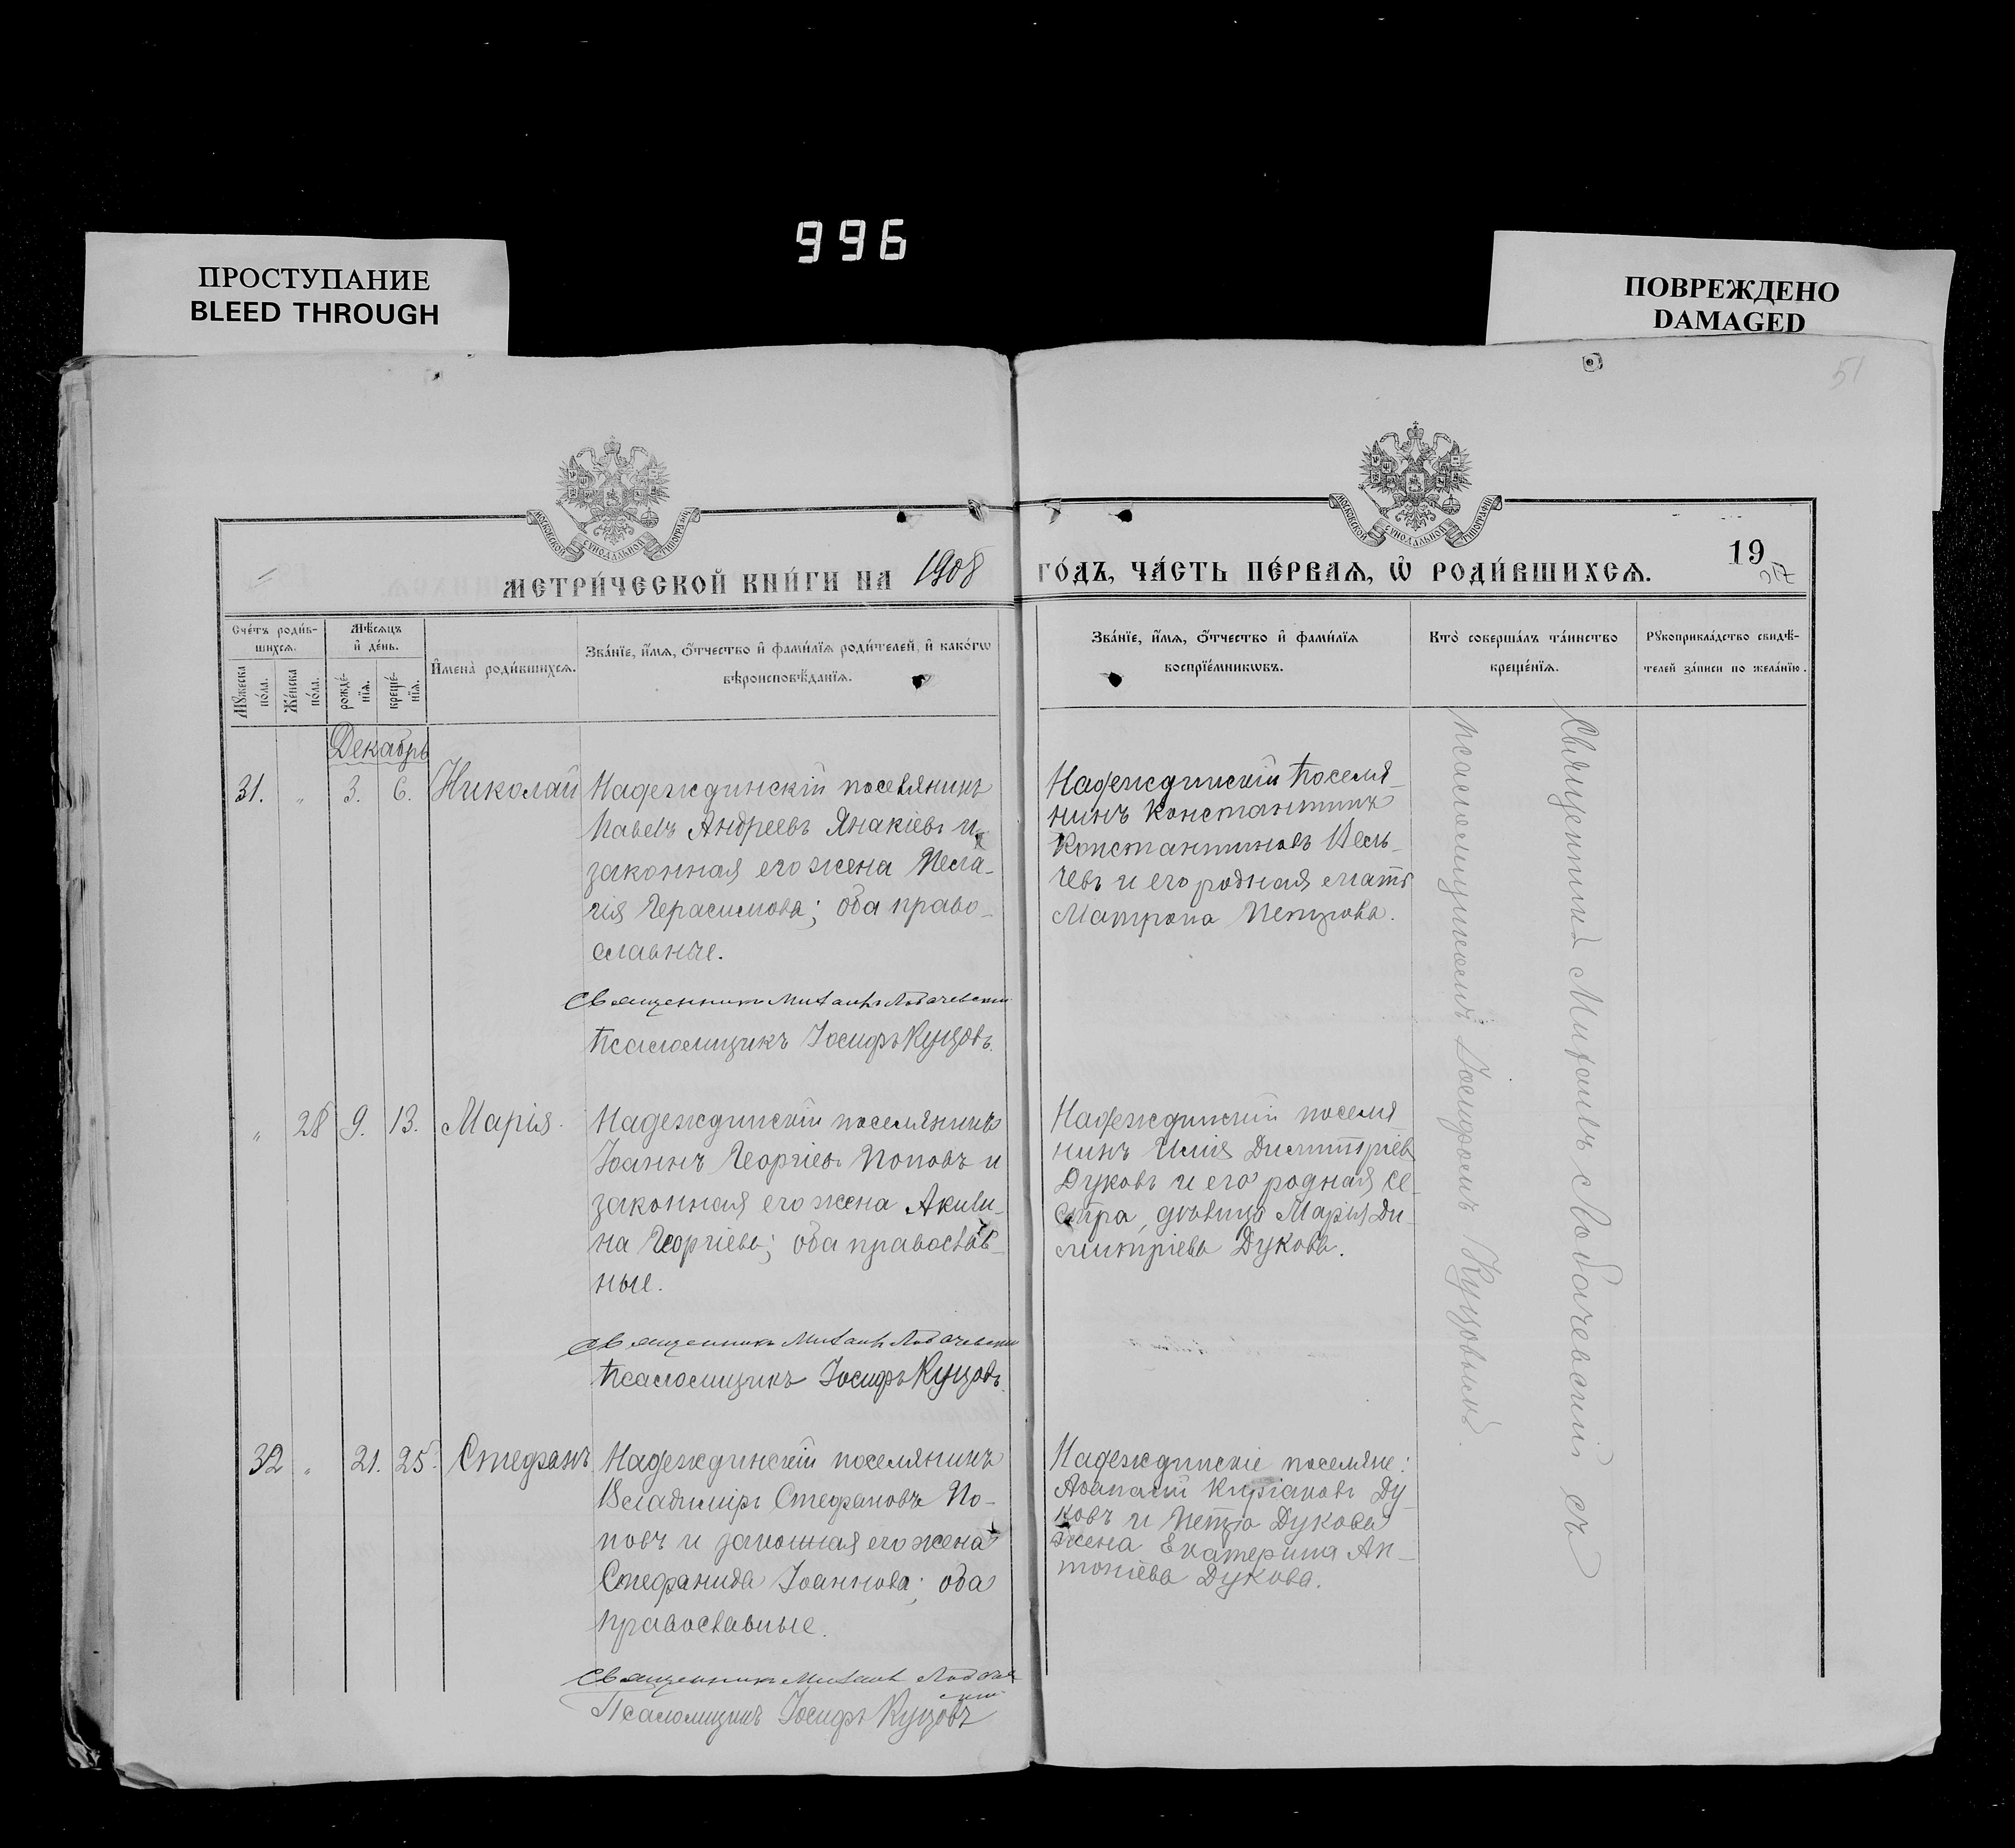 996
ПРОСТУПАНИЕ
BLEED THROUGH
ПОВРЕЖДЕНО
DAMAGED
51
МОСКОВСКОЙ СѴНОДАЛЬНОЙ ТИПОГРАФІИ
МОСКОВСКОЙ СѴНОДАЛЬНОЙ ТИПОГРАФІИ
МЕТРИ́ЧЕСКОЙ КНИ́ГИ НА 1908
ГО́ДЪ, ЧА́СТЬ ПЕ́РВАѦ, Ѡ҆ РОДИ́ВШИХСѦ.
19
Сче́тъ роди́в-
шихсѧ.
Мꙋ́жеска по́ла.
Же́нска по́ла.
Мѣ́сѧцъ
и҆ де́нь.
рожде́-
нїѧ.
креще́-
нїѧ.
И҆мена̀ роди́вшихсѧ.
Зва́нїе, и҆́мѧ, ѻ҆́тчество и҆ фами́лїѧ роди́телей, и҆ како́гѡ
вѣроисповѣ́данїѧ.
Зва́нїе, и҆́мѧ, ѻ҆́тчество и҆ фами́лїѧ
воспрїе́мникѡвъ.
Кто̀ соверша́лъ та́инство
креще́нїѧ.
Рꙋкоприкла́дство свидѣ́-
телей за́писи по жела́нїю.
Декабрь
31. " 3. 6. Николай
Надеждинскій поселянинъ
Павелъ Андреевъ Янакіевъ и
законная его жена Пела-
гія Герасимова; оба право-
славные.
Священникъ Михаилъ Лобачевскій
Псаломщикъ Іосифъ Куцовъ.
Надеждинскій поселя-
нинъ Константинъ
Константиновъ Вель-
чевъ и его родная мать
Матрона Петрова.
" 28 9. 13. Марія.
Надеждинскій поселянинъ
Іоаннъ Георгіевъ Поповъ и
законная его жена Акили-
на Георгіева; оба православ-
ные.
Священникъ Михаилъ Лобачевскій
Псаломщикъ Іосифъ Куцовъ.
Надеждинскій поселя
нинъ Илія Димитріевъ
Дуковъ и его родная се-
стра, дѣвица Марія Ди-
митріева Дукова.
32 " 21. 25. Стефанъ.
Надеждинскій поселянинъ
Владиміръ Стефановъ По-
повъ и законная его жена
Стефанида Іоаннова; оба
православные.
Священникъ Михаилъ Лобачев
скій
Псаломщикъ Іосифъ Куцовъ
Надеждинскіе поселяне:
Аѳанасій Киріаковъ Ду-
ковъ и Петра Дукова
жена Екатерина Ан-
тоніева Дукова.
Священникъ Михаилъ Лобачевскій съ
псаломщикомъ Іосифомъ Куцовымъ.